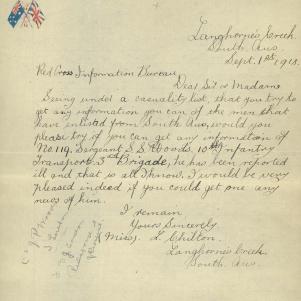 Langhorne's Creek
South. Aus.
Sept. 1st 1915.
Red Cross Information Bureau
Dear Sir or Madame
Seeing under a casuality list, that you try to
get any information you can of the men that
have enlisted from South Aus, would you
please try if you can get any information of
No. 119, Sergeant S. S. Woods, 10th Infantry
Transport. 3rd Brigade, he has been reported
ill and that is all I know. I would be very
pleased indeed if you could get one any
news of him.
I remain
Yours Sincerely
(Miss) L. Chilton.
Langhornes Creek
South. Aus.